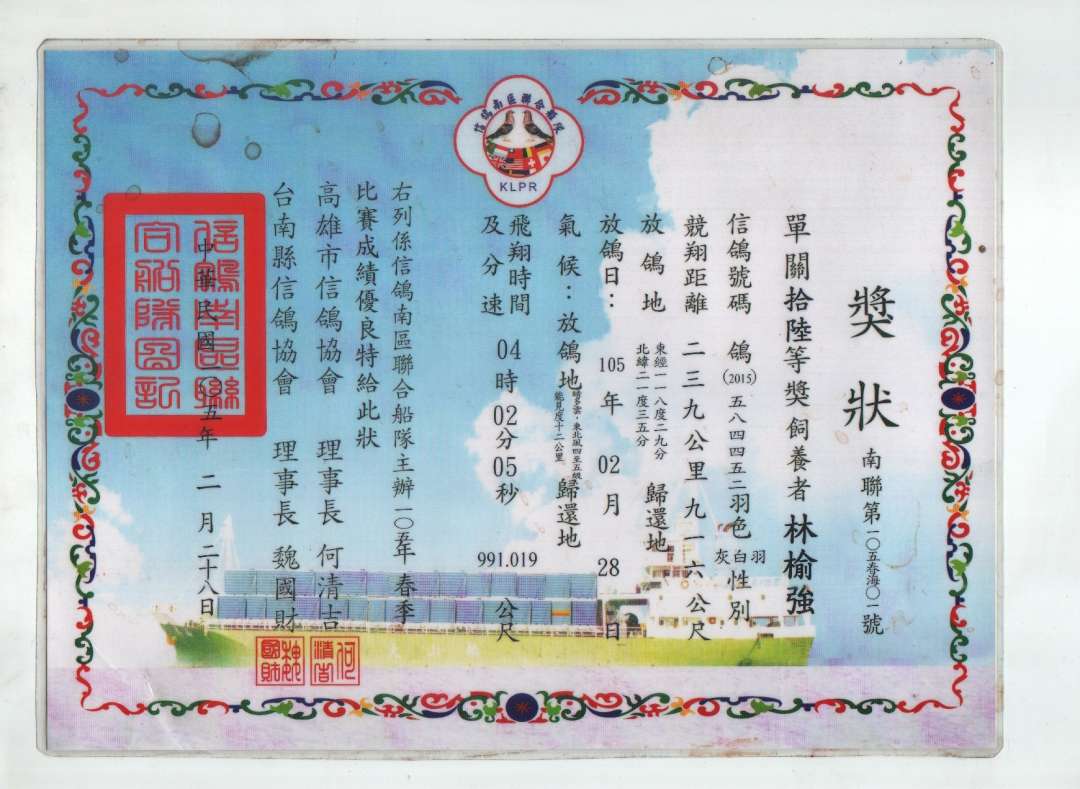 獎狀
南聯第一〇五春海〇一號
單關拾陸等獎飼養者 林榆強
信鴿號碼 鴿(2015)五八四四五二羽色 灰白羽 性別
競翔距離 二三九公里九一六公尺
放鴿地 東經一一八度二九分 北緯二一度三五分 歸還地
放鴿日: 105年02月28日
氣候:放鴿地 晴多雲・東北風四至五級 能見度十二公里 歸還地
飛翔時間及分速 04時02分05秒 991.019 公尺
右列係信鴿南區聯合船隊主辦一〇五年春季
比賽成績優良特給此狀
高雄市信鴿協會 理事長 何清吉
台南縣信鴿協會 理事長 魏國財
中華民國一〇五年 二月二十八日
信鴿南區聯合船隊
KLPR
信鴿南區聯合船隊圖記
何清吉
魏國財